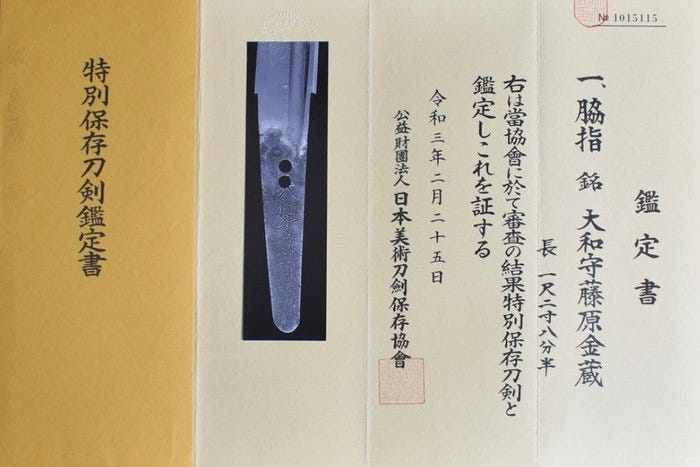 № 1015115
鑑定書
一、脇指 銘 大和守藤原金蔵
長 一尺二寸八分半
右は當協會に於て審査の結果特別保存刀剣と
鑑定しこれを証する
令和三年二月二十五日
公益財團法人 日本美術刀劍保存協會
特別保存刀剣鑑定書